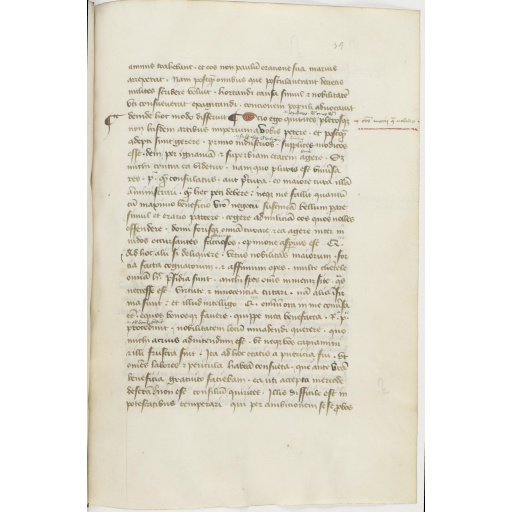 omnis trahebant · et eos non paulum oracione sua marius
arexerat · Nam postq̃ omnibus que postulauerant decretis
milites scribere voluit · hortandi causa simul & nobilitatẽ
vti consueuerat exagitandi · concionem populi aduocauit
deinde hoc modo disseruit Scio ego quirites plerosq;
non hisdem artibus imperium a vobis petere · et postq̃
adepti sunt gerere · primo industrios · supplices modicos
esse · dein per ignauiã & superbiam etatem agere · Sz
michi contra ea videtur · nam quo pluris est vniũsa
res · p · q̃ consulatus · aut p̃tura · eo maiore cura illã
aministrari · q̃ hec peti debere · neq; me fallit quantũ
cũ maximo beneficio vr̃o negocii sustineã bellum pare
simul et erario parcere · cogere ad miliciã eos quos nolis
offendere · domi forisq; omnia curare & ea agere inter in
uidos occursantes factiosos · opinione asperius est ·
Ad hoc alii si deliquere · vetus nobilitas maiorum · for
tia facta cognatorum · & affinium opes · multe clientele
omnia his presidia sunt · michi spes om̃s in me site · q̃s
necesse est · virtute & innocentia tutari · nã alia infir
ma sunt · et illud intelligo · Q · omniũ ora in me conuersa
eẽ · equos bonosq; fauere · quippe mea benefacta · R · p ·
procedunt · nobilitatem locũ inuadendi querere · quo
michi acrius adnitendum est · vt neq; vos capiamini
& illi frustra sint · Ita ad hoc etatis a puericia fui · vt
omẽs labores & pericula habeã consueta · que ante vr̃a
beneficia gratuito faciebam · ea uti accepta mercede
deserã non est consiliũ quirites · Illis difficile est in
potestatibus temperare qui per ambitionem sese p̃bos